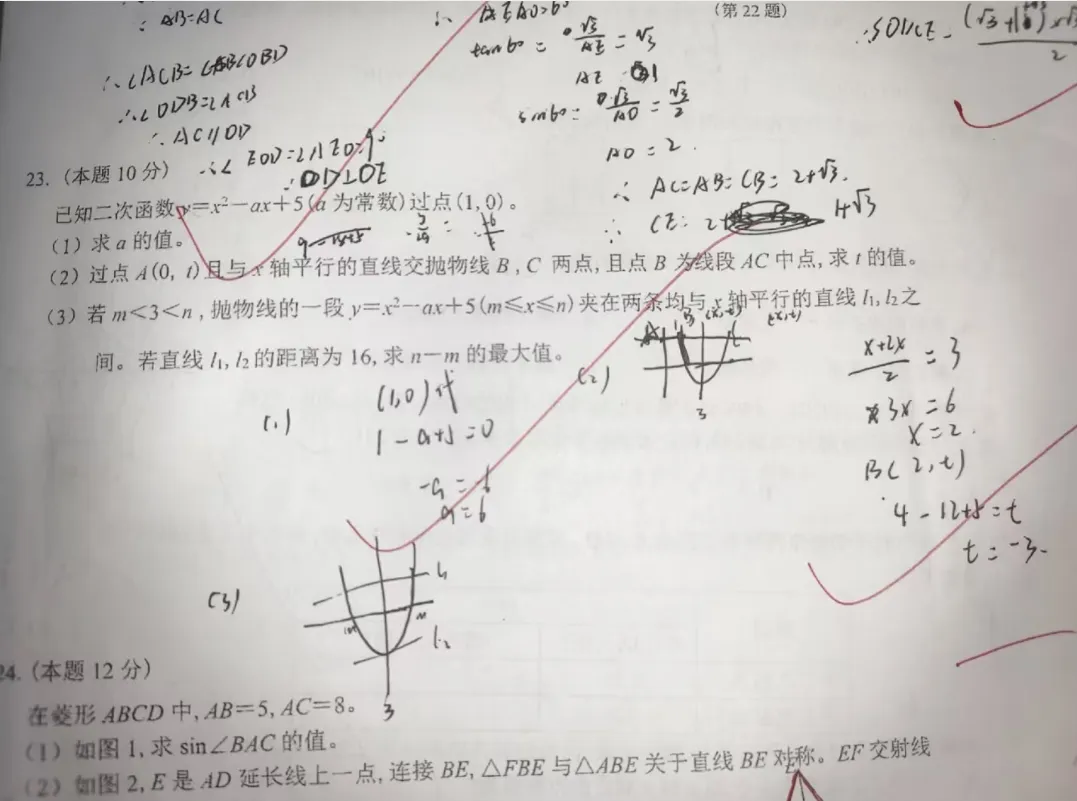 ∴ AB=AC
∴ ∠ACB=∠ABC
∴ ∠ODB=∠ACB
∴ AC∥OD
∴ ∠EOD=∠AEO=9
∴ OD⊥OE
tan60 = √3/AE = √3
AE 1
sin60 = √3/AO = √3/2
AO = 2.
∴ AC=AB=CB=2+√3.
∴ CE= 1+√3
(第22题)
23. (本题10分)
已知二次函数y=x²-ax+5(a为常数)过点(1,0)。
(1) 求a的值。
(2) 过点A(0, t)且与x轴平行的直线交抛物线B,C两点,且点B为线段AC中点,求t的值。
(3) 若m<3<n,抛物线的一段y=x²-ax+5(m≤x≤n)夹在两条均与x轴平行的直线l₁,l₂之
间。若直线l₁,l₂的距离为16,求n-m的最大值。
(1)
(1,0)代
1-a+5=0
-a=-6
a=6
(2)
A B C
3
(x+2x)/2 = 3
3x=6
x=2.
B(2,t)
4-12+5=t
t=-3.
(3)
l₁
m n
l₂
3
24. (本题12分)
在菱形ABCD中,AB=5,AC=8。
(1) 如图1,求sin∠BAC的值。
(2) 如图2,E是AD延长线上一点,连接BE,△FBE与△ABE关于直线BE对称。EF交射线